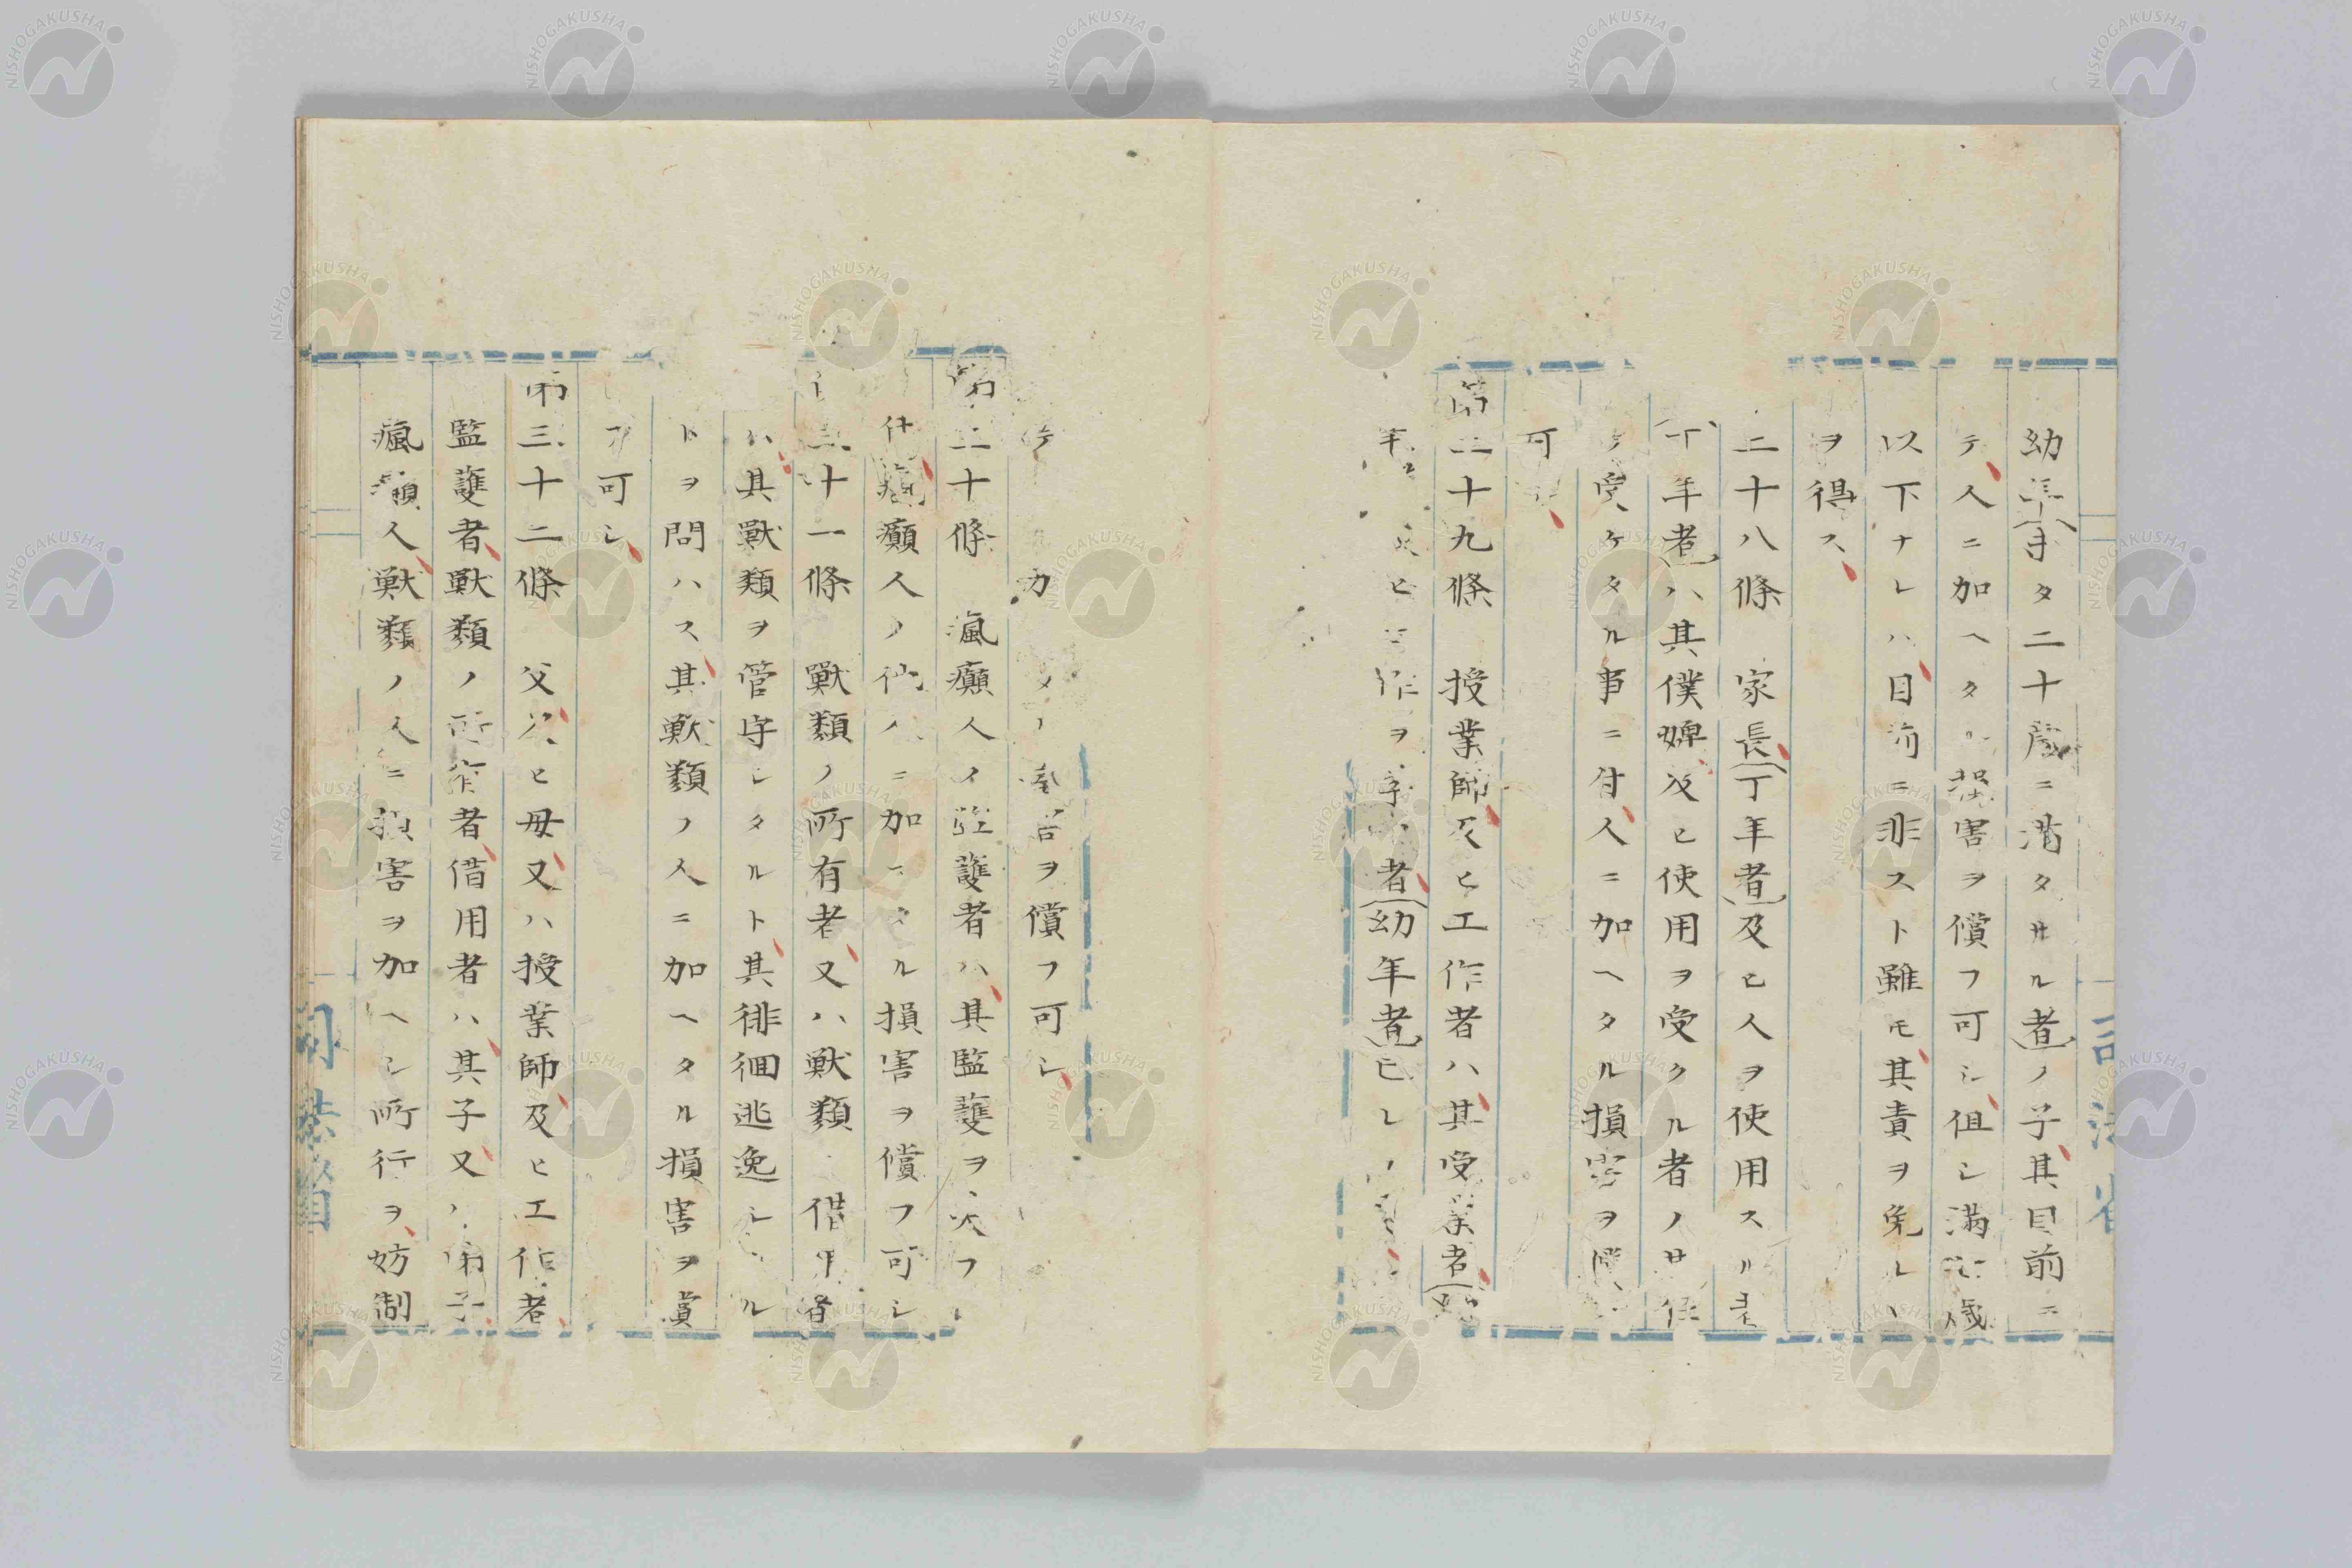 幼年（未タ二十歳ニ満タサル者）ノ子其目前ニ
テ人ニ加ヘタル損害ヲ償フ可シ但シ満 歳
以下ナレハ目前ニ非スト雖モ其責ヲ免ルヽ
ヲ得ス
二十八條 家長（丁年者）及ヒ人ヲ使用スル者
（丁年者）ハ其僕婢及ヒ使用ヲ受クル者ノ其任
ヲ受ケタル事ニ付人ニ加ヘタル損害ヲ償フ
可シ
第二十九條 授業師及ヒ工作者ハ其受業者（幼
年 及ヒ工作ヲ 者（幼年者）
カ ノ 害ヲ償フ可シ
第三十條 瘋癲人ノ監護者ハ其監護ヲ失フ
瘋癲人ノ他人ニ加ヘタル損害ヲ償フ可シ
三十一條 獸類ノ所有者又ハ獸類 借用者
ハ其獸類ヲ管守シタルト其徘徊逃逸シ ル
トヲ問ハス其獸類ノ人ニ加ヘタル損害ヲ償
フ可シ
第三十二條 父及ヒ母又ハ授業師及ヒ工作者
監護者獸類ノ所有者借用者ハ其子又ハ弟子
瘋癲人獸類ノ人ニ損害ヲ加ヘシ所行ヲ妨制
司法省
司法省
NISHOGAKUSHA